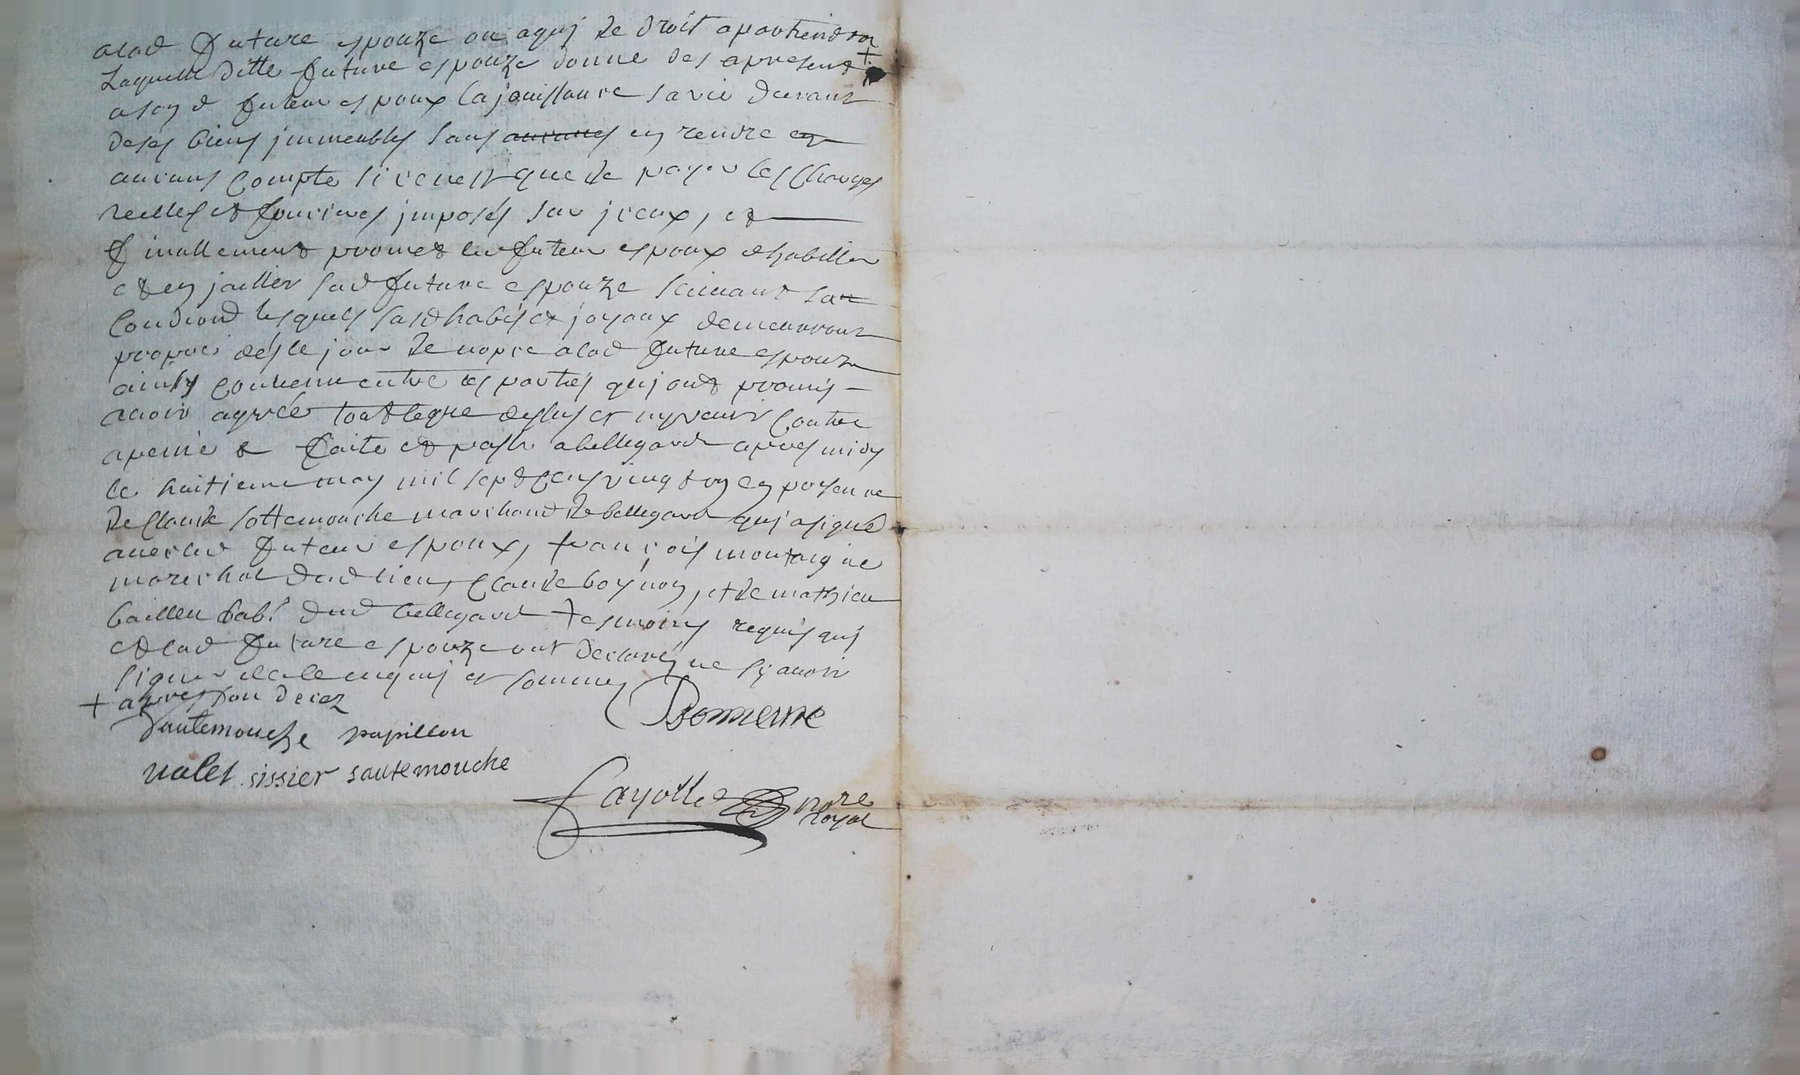 alad future espouze ou aquj de droit apartiendra
Laquelle ditte future espouze donne des apresent +
a sond futeur espoux la jouissance sa vie durant
de ses biens jmmeubles sans aucunes en rendre en
aucuns compte si ce nest que de payer les charges
reelles et foncieres jmposés sur jceux, et
finallement promet led futeur espoux dhabiller
et en jailler sad future espouze suivant sa
condiond lesquels susd habis et joyaux demeureront
propres dés le jour de nopce alad future espouze
ainsy convenu entre les parties quj ont promis
avoir agreée tout leque dessus et ny venir contre
apeine & faite et passé a bellegarde apres midy
le huitieme may mil sept cens vingt un en presence
de Claude sottemouche marchand de bellegarde quj a signé
avec led futeur espoux, françois montaigne
mareschal dud lieu, Claude boynon, et de mathieu
baillen hab.t dud bellegard tesmoins requis quj
et lad future espouze ont declaré ne sçavoir
signer de ce enquis et sommes
+ apres son deces
Sautemouche papillon
Bonnerme
valet sissier sautemouche
fayolle no.re
Royal